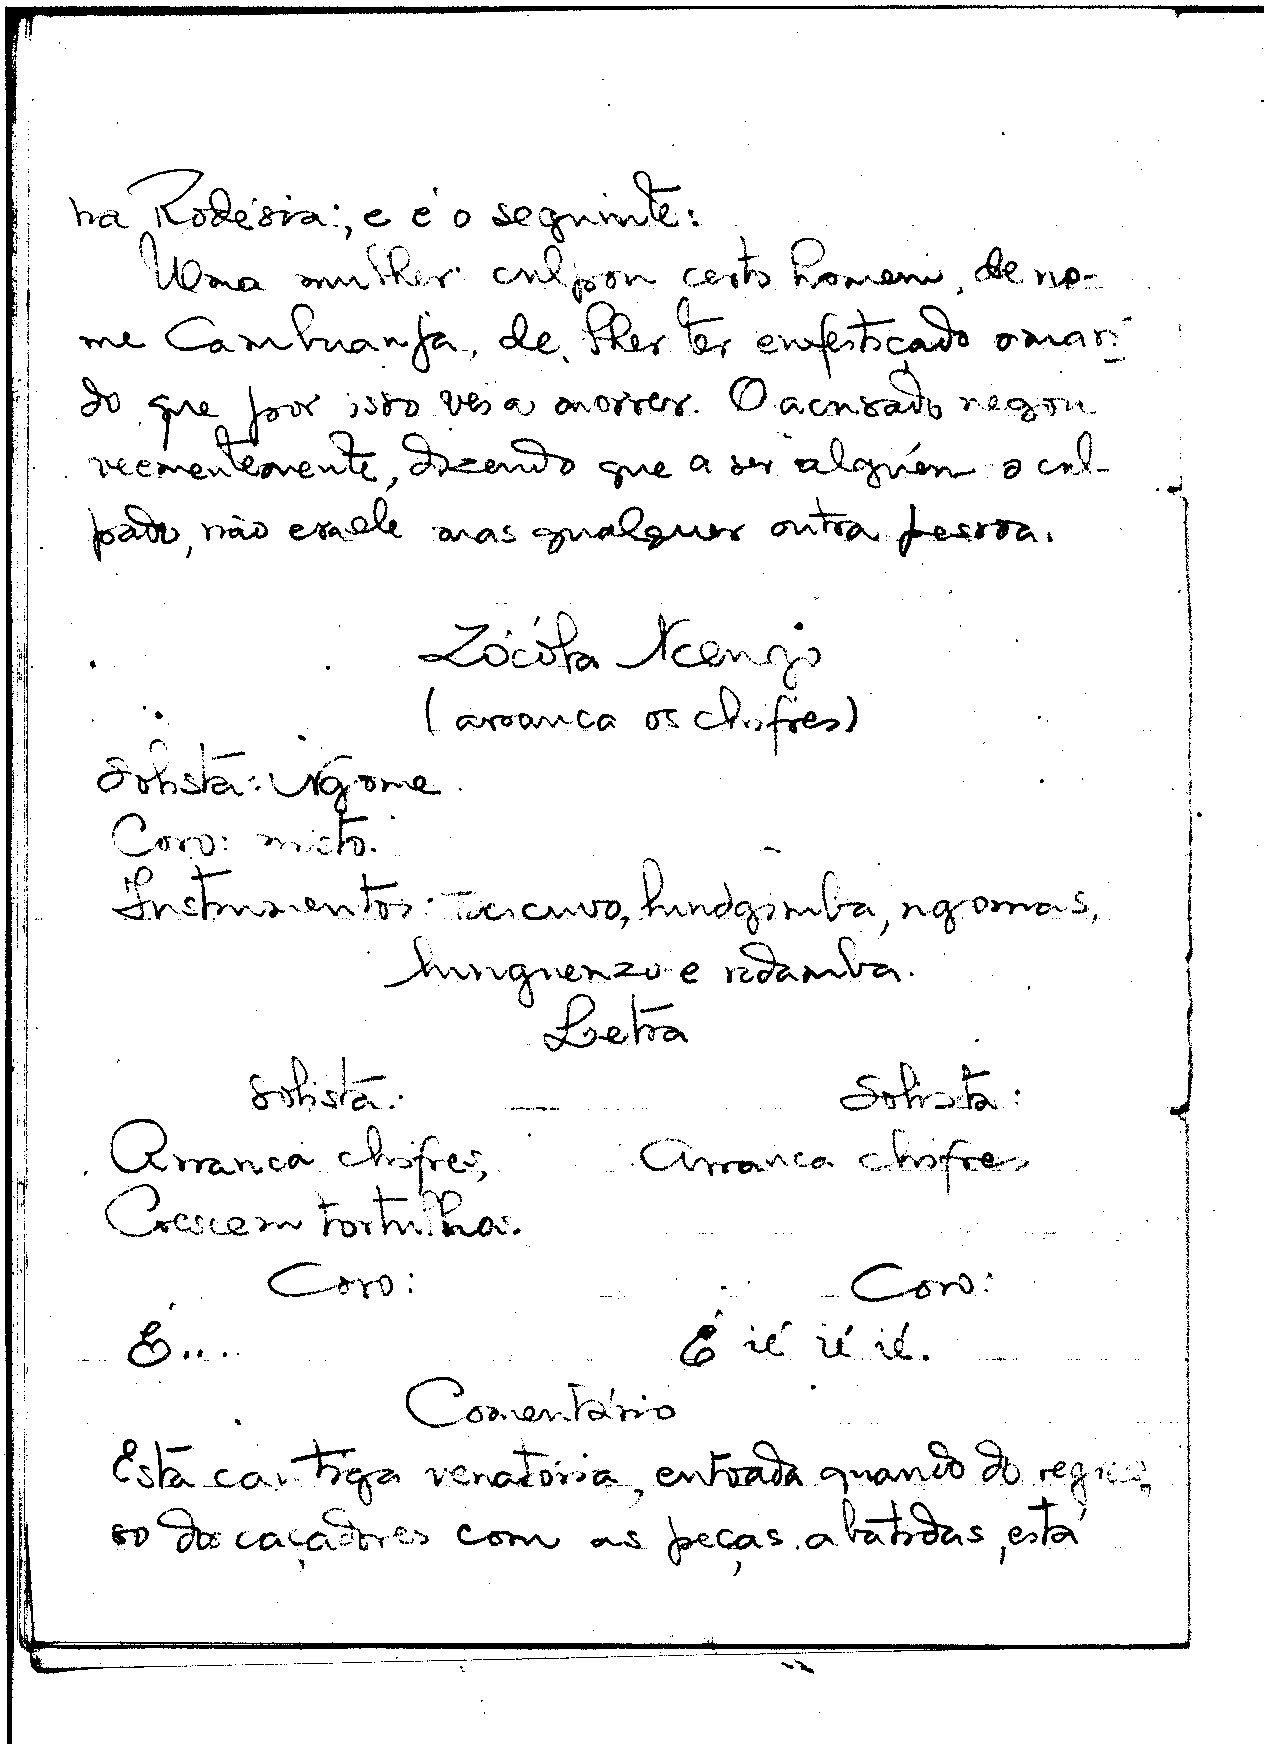 na Rodésia:, e é o seguinte:
Uma mulher culpou certo homem, de no-
me Cambuanja, de lher ter enfeitiçado o mari-
do que por isso veio a morrer. O acusado negou
veementemente, dizendo que a ser alguém o cul-
pado, não era ele mas qualquer outra pessoa.
Zócóla Ncengo
(arranca os chifres)
Solista: Ngome
Coro: misto.
Instrumentos: hindgimba, ngomas,
hinguenzo e ndamba.
Letra
Solista: Solista:
Arranca chifres, Arranca chifres
Crescem tortulhos.
Coro: Coro:
É... É ié ié ié.
Comentário
Esta cantiga venatória, entoada quando do regres-
so dos caçadores com as peças abatidas, está